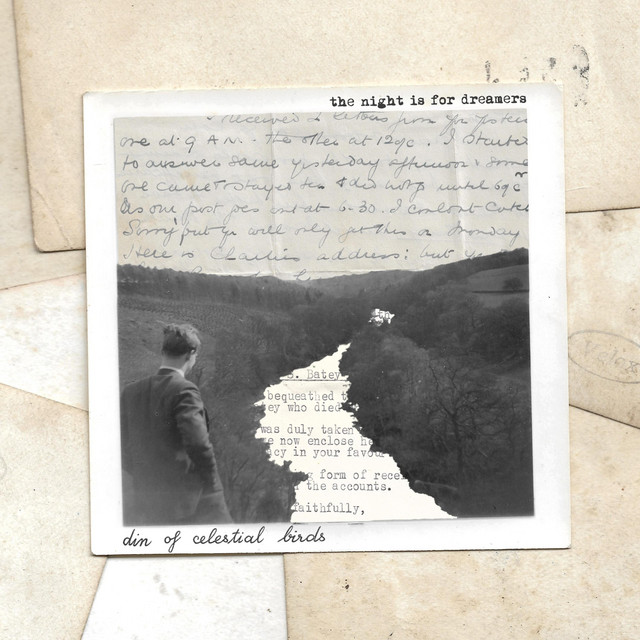 the night is for dreamers
received 2 letters from yr yester
one at 9 AM. the other at 12 oc. I started
to answer same yesterday afternoon & some
one came & stayed tea & did not go until 6
As one post goes out at 6-30. I couldnt catch
Sorry but yo will only get this on Monday
Here is Charlies address: but
S. Batey
bequeathed t
ey who died
was duly taken
e now enclose he
cy in your favou
g form of recei
the accounts.
faithfully,
din of celestial birds